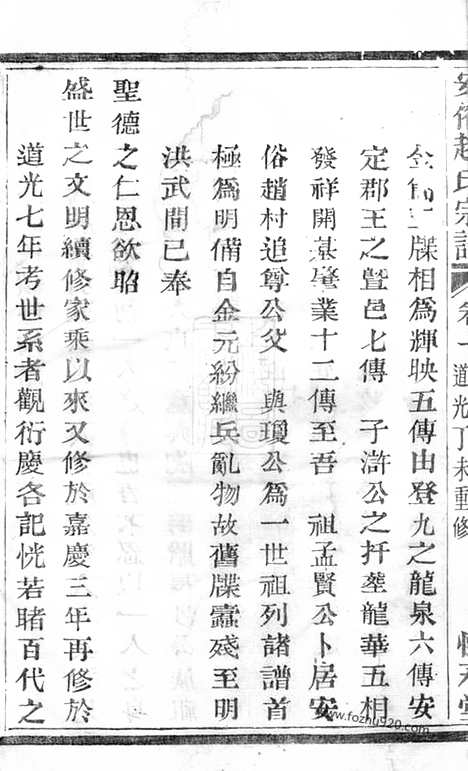 趙氏宗譜 卷一 道光丁未重修
牒相為輝映五傳由登九之龍泉六傳安
定郡王之暨邑七傳 子滸公之扞塟龍華五相
發祥開基肇業十二傳至吾 祖孟賢公卜居安
俗趙村追尊公父 與瓊公為一世祖列諸譜首
極為明備自金元紛繼兵亂物故舊牒蠹殘至明
洪武間已奉
聖德之仁恩欲昭
盛世之文明續修家乘以來又修於嘉慶三年再修於
道光七年考世系者觀衍慶各記恍若睹百代之
www.fozhu920.com